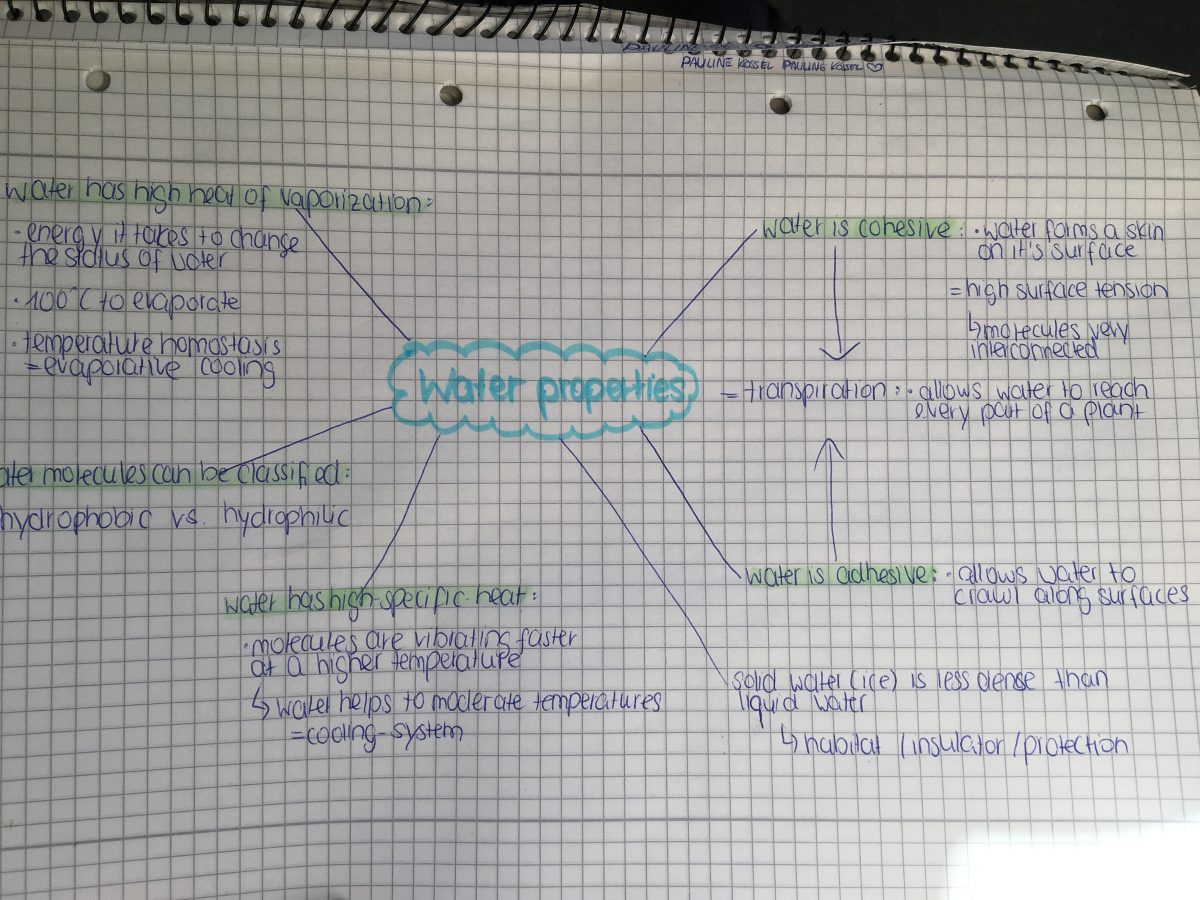 PAULINE
PAULINE KOSSEL PAULINE KOSSEL ♡
water has high heat of vaporization:
· energy it takes to change
the status of water
· 100°C to evaporate
· temperature homostasis
= evaporative cooling
ater molecules can be classified:
hydrophobic vs. hydrophilic
water has high-specific-heat:
· molecules are vibrating faster
at a higher temperature
↳ water helps to moderate temperatures
= cooling-system
Water properties
water is cohesive: · water forms a skin
on it's surface
= high surface tension
↳ molecules very
interconnected
= transpiration: · allows water to reach
every part of a plant
water is adhesive: · allows water to
crawl along surfaces
solid water (ice) is less dense than
liquid water
↳ habitat / insulator / protection